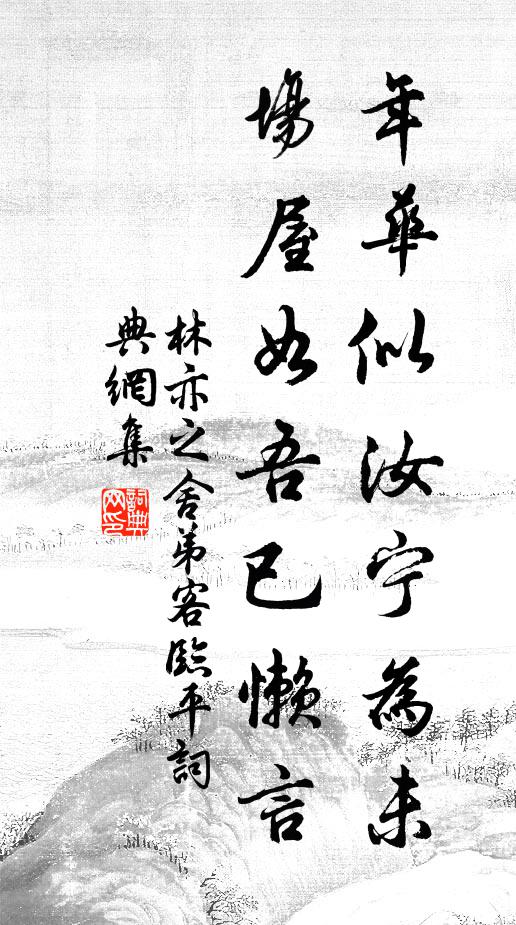 年華似汝宁為未
場屋如吾已懶言
林亦之舍弟客臨平詞
典網集
詞典網印